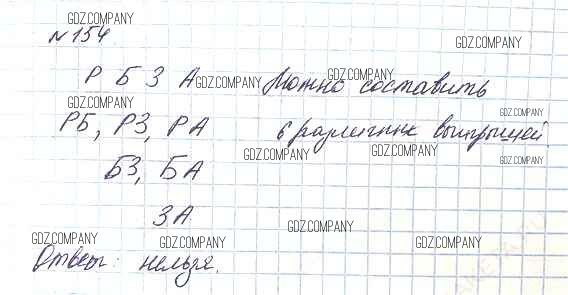 GDZ.COMPANY
№154
GDZ.COMPANY
Р Б З А GDZ.COMPANY Можно составить GDZ.COMPANY
GDZ.COMPANY
GDZ.COMPANY
РБ, РЗ, РА 6 различных выигрышей
GDZ.COMPANY GDZ.COMPANY GDZ.COMPANY
БЗ, БА
ЗА
GDZ.COMPANY
GDZ.COMPANY GDZ.COMPANY GDZ.COMPANY
Ответ: нельзя.